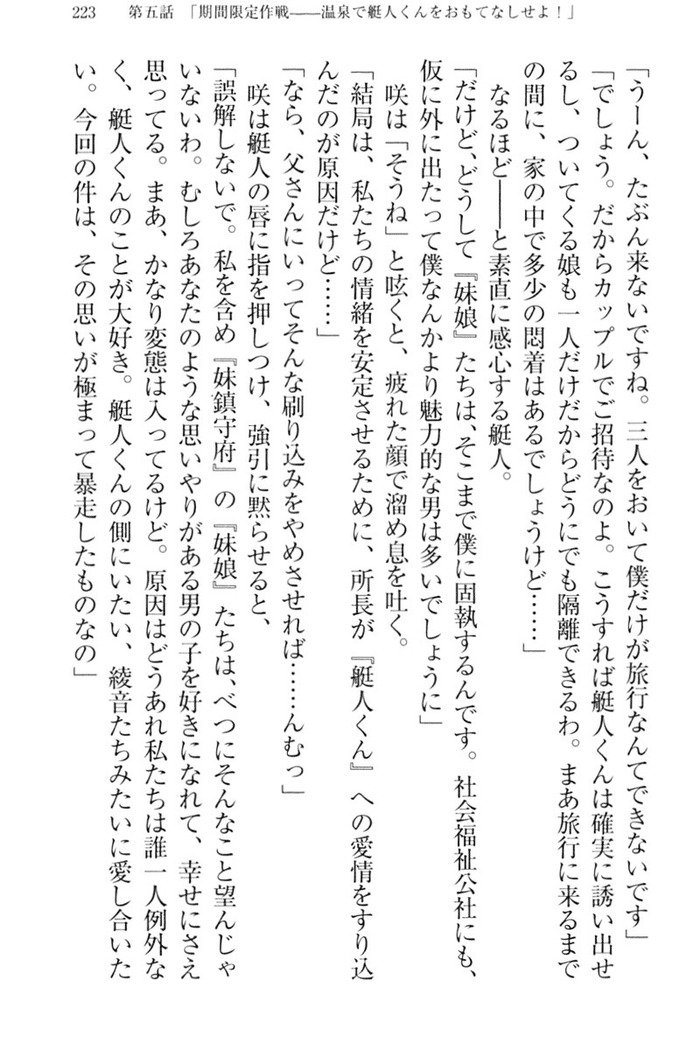 223　第五話　「期間限定作戦――温泉で艇人くんをおもてなしせよ！」
「うーん、たぶん来ないですね。三人をおいて僕だけが旅行なんてできないです」
「でしょう。だからカップルでご招待なのよ。こうすれば艇人くんは確実に誘い出せ
るし、ついてくる娘も一人だけだからどうにでも隔離できるわ。まあ旅行に来るまで
の間に、家の中で多少の悶着はあるでしょうけど……」
なるほど――と素直に感心する艇人。
「だけど、どうして『妹娘』たちは、そこまで僕に固執するんです。社会福祉公社にも、
仮に外に出たって僕なんかより魅力的な男は多いでしょうに」
咲は「そうね」と呟くと、疲れた顔で溜め息を吐く。
「結局は、私たちの情緒を安定させるために、所長が『艇人くん』への愛情をすり込
んだのが原因だけど……」
「なら、父さんにいってそんな刷り込みをやめさせれば……んむっ」
咲は艇人の唇に指を押しつけ、強引に黙らせると、
「誤解しないで。私を含め『妹鎮守府』の『妹娘』たちは、べつにそんなこと望んじゃ
いないわ。むしろあなたのような思いやりがある男の子を好きになれて、幸せにさえ
思ってる。まあ、かなり変態は入ってるけど。原因はどうあれ私たちは誰一人例外な
く、艇人くんのことが大好き。艇人くんの側にいたい、綾音たちみたいに愛し合いた
い。今回の件は、その思いが極まって暴走したものなの」